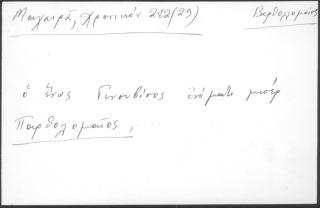 Μαχαιρᾶ, Χρονικόν 282 (29)
Βαρθολομαῖος
ὁ ἕνας Γενουβίσος ὀνόματι μισὲρ
Παρθολομαῖος, ....